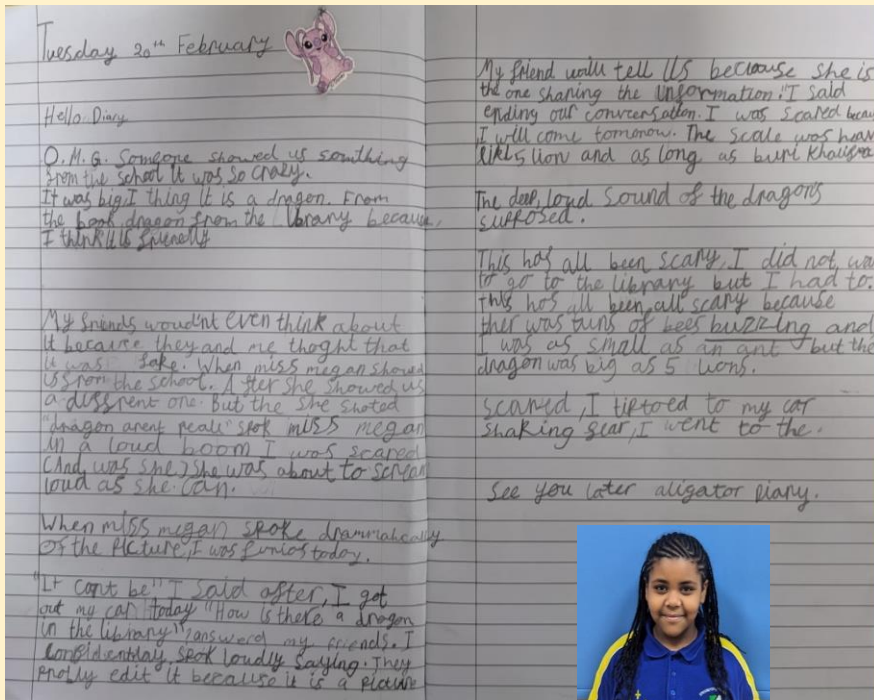 Tuesday 20th February
Hello Diary
O.M.G. Someone showed us somthing
from the school It was so crazy.
It was big, I thing it is a dragon. From
the book dragon from the library because,
I think it is friendly
My friends would'nt even think about
it because they and me thoght that
it was fake. When miss megan showd
us from the school. After she showed us
a diffrent one. But the she shoted
"dragon arent peale" spok miss megan
in a loud boom I was scared
(And was she) She was about to scream
loud as she can.
When miss megan spoke drammatically
of the picture, I was funios today.
"It cant be" I said after, I got
out my car today "How is there a dragon
in the library", answerd my friends. I
confidentlay spok loudly saying. They
prolly edit it because it is a picture
My friend will tell us because she is
the one sharing the information." I said
ending our conversation. I was scared becau
I will come tomorrow. The scale was heav
like 5 lion and as long as burj Khalifa
The deep, loud sound of the dragons
supposed.
This has all been scary, I did not wa
to go to the library but I had to.
This has all been all scary because
ther was tuns of bees buzzing and
I was as small as an ant but the
dragon was big as 5 lions.
scared, I tiptoed to my car
shaking fear, I went to the.
See you later aligator Diary.